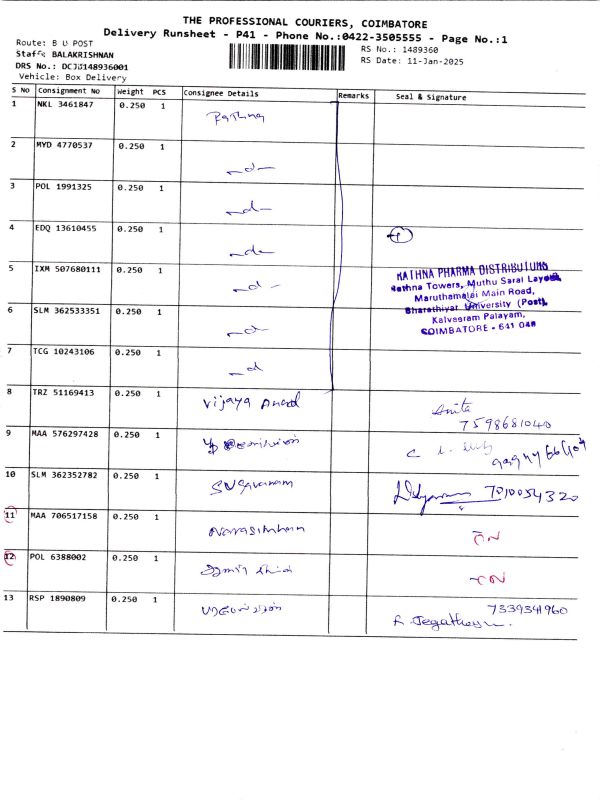 THE PROFESSIONAL COURIERS, COIMBATORE
Delivery Runsheet - P41 - Phone No.:0422-3505555 - Page No.:1
Route: B U POST
Staff: BALAKRISHNAN
DRS No.: DCJJ148936001
Vehicle: Box Delivery
RS No.: 1489360
RS Date: 11-Jan-2025
S No Consignment No Weight PCS Consignee Details Remarks Seal & Signature
1 NKL 3461847 0.250 1 Rathna
2 MYD 4770537 0.250 1 -d-
3 POL 1991325 0.250 1 -d-
4 EDQ 13610455 0.250 1 -do-
5 IXM 507680111 0.250 1 -d-
6 SLM 362533351 0.250 1 -d-
7 TCG 10243106 0.250 1 -d
RATHNA PHARMA DISTRIBUTORS
Rathna Towers, Muthu Saral Layout
Maruthamalai Main Road,
Bharathiyar University (Post),
Kalveeram Palayam,
COIMBATORE - 641 046
8 TRZ 51169413 0.250 1 Vijaya Anand Anita
7598681040
9 MAA 576297428 0.250 1
10 SLM 362352782 0.250 1 7010054320
11 MAA 706517158 0.250 1 Narasimhan
12 POL 6388002 0.250 1
13 RSP 1890809 0.250 1 7339341960